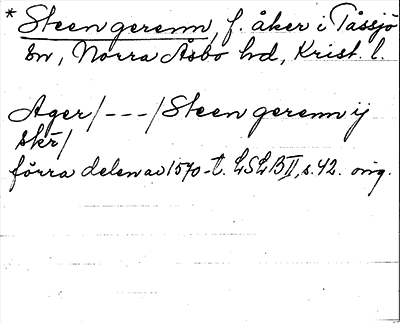 * Steengerenn, f. åker i Tåssjö
sn, Norra Åsbo hd, Krist. l.
Ager/---/Steengerenn ij
skr/
förra delen av 1570-t. LSLB II, s. 42. orig.